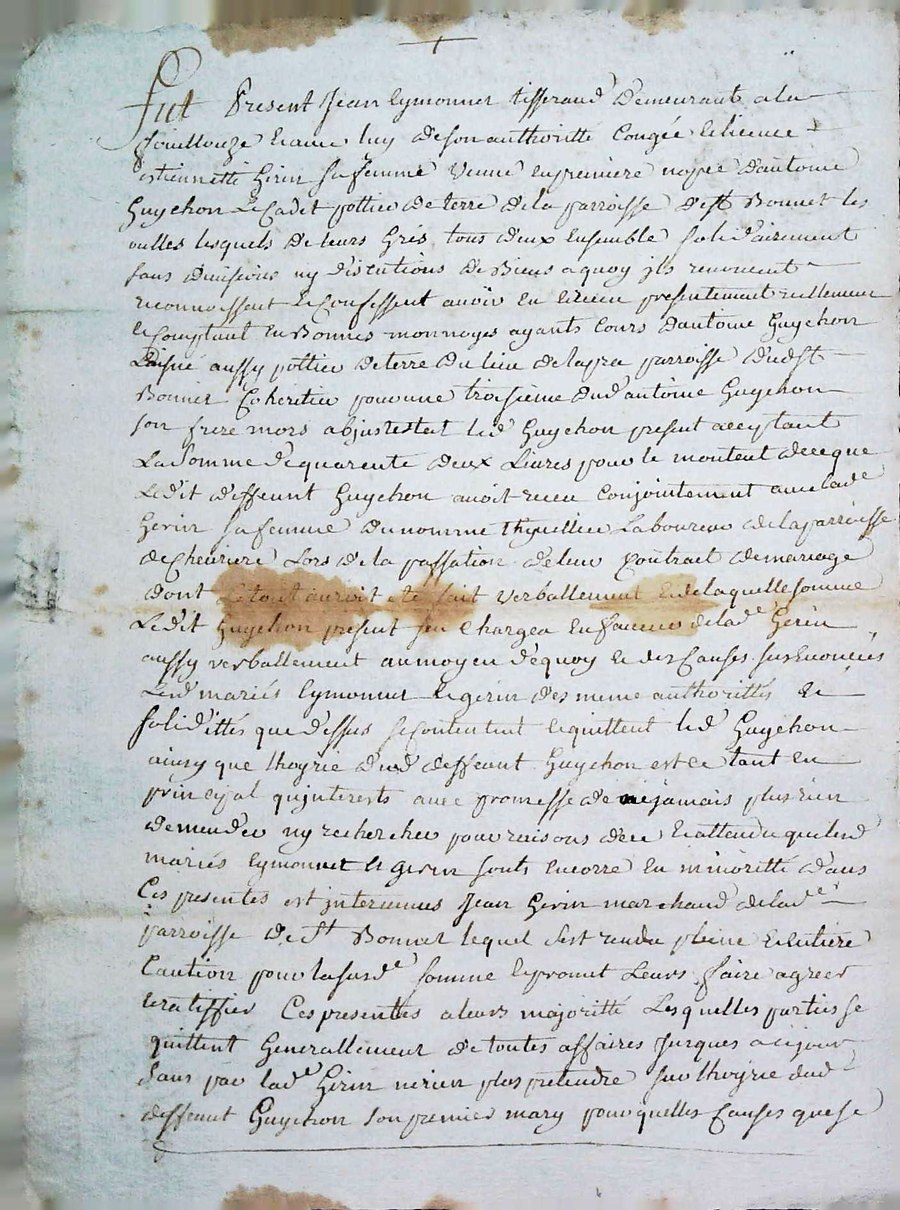 +
fut Present Jean Eymonnet tisserand demeurant a la
fouillouze & avec luy de son authoritté Congée & licence
estiennette Gerin sa femme veuve en premiere nopce d'antoine
Guychon le Cadet pottier de terre de la parroisse de st Bonnet les
oulles lesquels de leurs grés tous deux Ensemble solidairement
sans divisions ny discutions de Biens a quoy jls renoncent
reconnoissent & Confessent avoir eu & receu presentement reellement
& Comptant en Bonnes monnoyes ayants Cours d'antoine Guychon
Laisné aussy pottier de terre du lieu de lapra parroisse dud st
Bonnet Coheritier pour une troisieme dud antoine Guychon
son frere mors abjntestat led Guychon present acceptant
La somme de quarente deux Livres pour le montent de ce que
Ledit deffeunt Guychon avoit receu Conjointement avec lade
Gerin sa femme du nomme thyvellier Laboureur de la parroisse
de Chevriere Lors de la passation de leur Contrait de mariage
dont Le tout auroit ete fait verballement & de laquelle somme
Ledit Guychon present sen Chargea En faveur de lade Gerin
aussy verballement au moyen dequoy & des Causes sus Enoncées
Led mariés Eymonnet & gerin des meme authorittés &
solidittés que dessus se Contentent & quittent led Guychon
ainsy que lhoyrie dud deffeunt Guychon est ce tant en
principal qujnterests avec promesse de nejamais plus rien
demender ny rechercher pour raisons de ce & attendu que lesd
mariés Eymonnet & gerin sonts Encorre En minoritté dans
Ces presentes est jntervenus Jean Gerin marchand de lade
parroisse de St Bonnet lequel sest rendu pleine & Entiere
Caution pour la susde somme & promet Leurs faire agreer
& ratiffier Ces presentes a leurs majoritté Lesquelles parties se
quittent Generallement de toutes affaires jusques a cejour
sans par lade Gerin ne rien plus pretendre sur lhoyrie dud
deffeunt Guychon son premier mary pour quelles Causes que se